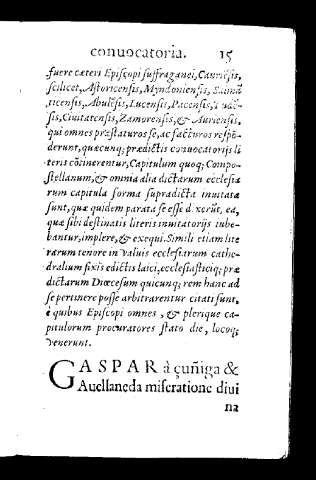 conuocatoria. 15
fuere cæteri Episcopi suffraganei, Cauriēsis,
scilicet, Astoricensis, Myndoniensis, Salmā
ticensis, Abulēsis, Lucensis, Pacensis,
sis, Ciuitatensis, Zamorensis, & Auriensis,
qui omnes præstaturos se, ac facturos respō
derunt, quæcunq; prædictis conuocatorijs li
teris cōtinerentur, Capitulum quoq; Compo-
stellanum, & omnia alia dictarum ecclesia
rum capitula forma supradicta inuitata
sunt, quæ quidem parata se esse dixerūt, ea,
quæ sibi destinatis literis inuitatorijs iube-
bantur, implere, & exequi. Simili etiam lite
rarum tenore in valuis ecclesiarum cathe-
dralium fixis edictis laici, ecclesiasticiq; præ
dictarum Diœcesum quicunq; rem hanc ad
se pertinere posse arbitrarentur citati sunt,
è quibus Episcopi omnes, & plerique ca-
pitulorum procuratores stato die, locoq;
venerunt.
GASPAR à çuñiga &
Auellaneda miseratione diui
na